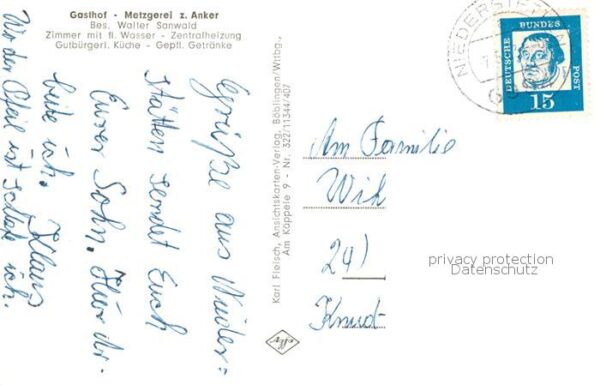 Gasthof - Metzgerei z. Anker
Bes. Walter Sanwald
Zimmer mit fl. Wasser - Zentralheizung
Gutbürgerl. Küche - Gepfl. Getränke
Grüße aus Nieder=
stätten sendet Euch
Eurer Sohn. Hier
bin ich. Klaus
Wo der Pfeil ist schlafe ich.
Karl Fleisch, Ansichtskarten-Verlag, Böblingen/Wttbg.,
Am Käppele 9 - Nr. 322/11344/407
NIEDERSTETTEN
DEUTSCHE BUNDESPOST
15
An Familie
241
privacy protection
Datenschutz